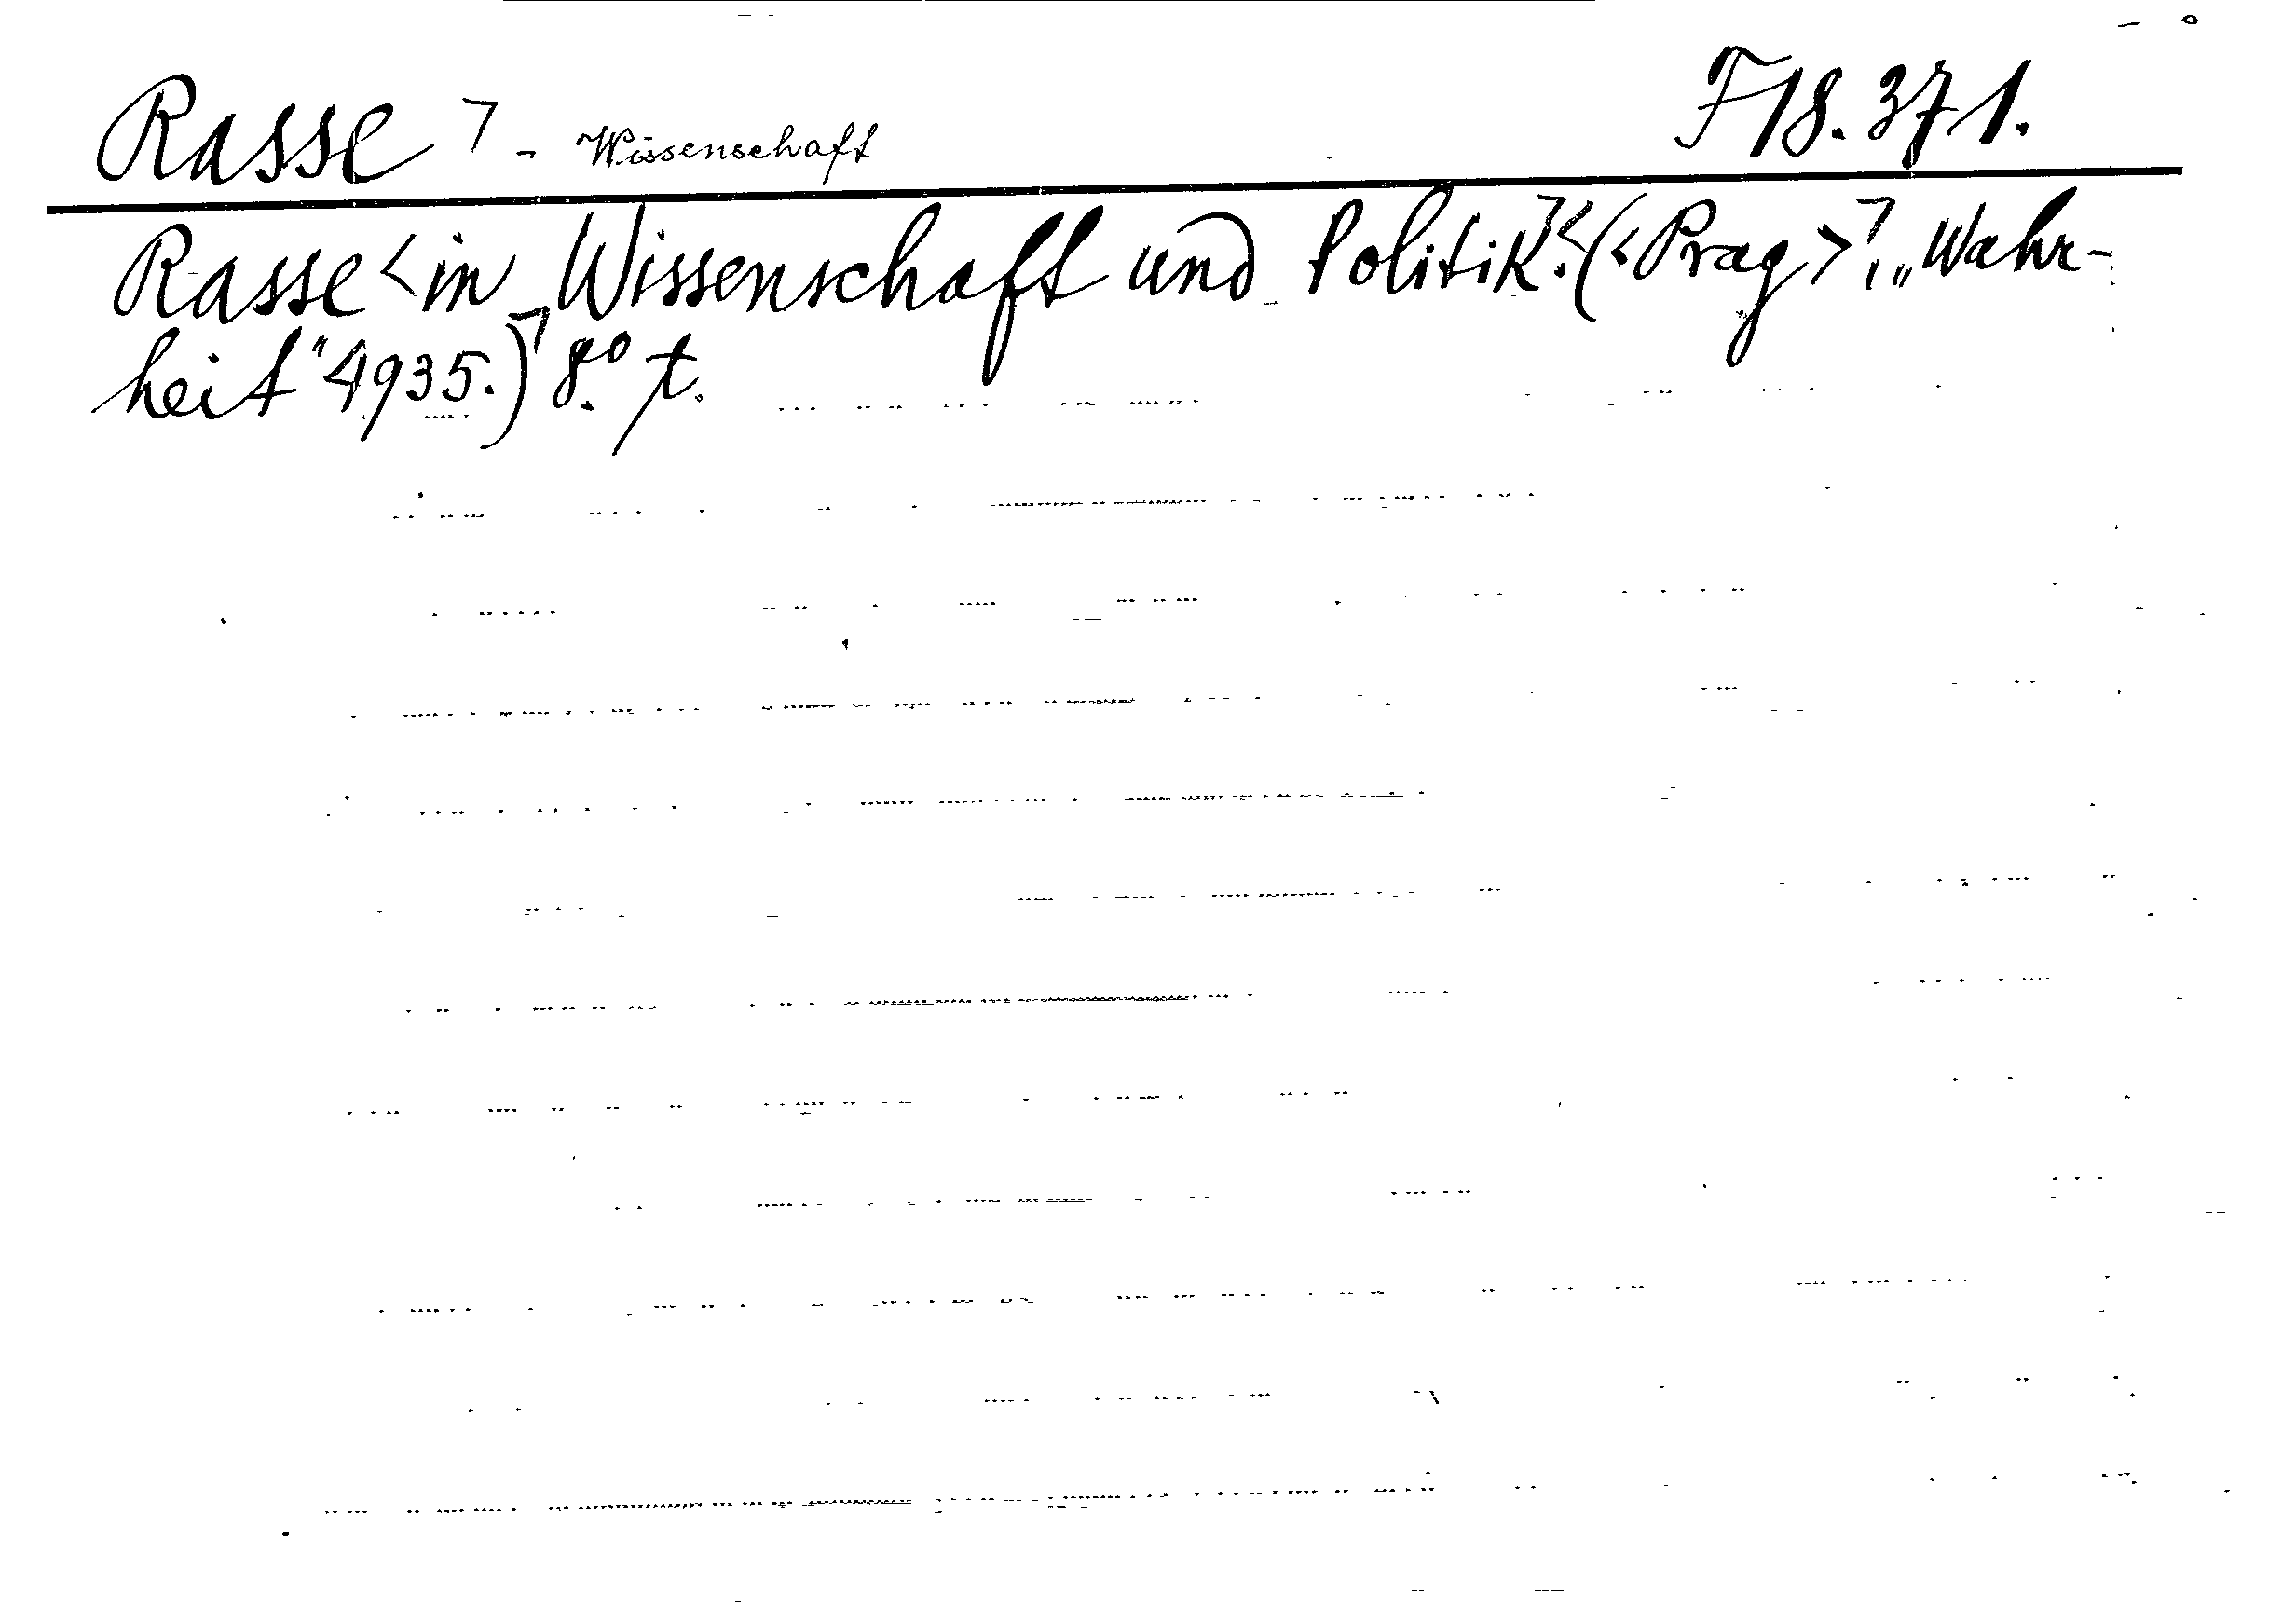 Rasse ⌝ - Wissenschaft F 18.371.
Rasse < in Wissenschaft und Politik.⌝ < (< Prag >⌝, „Wahr-
heit" 1935.)⌝ 8.° t.